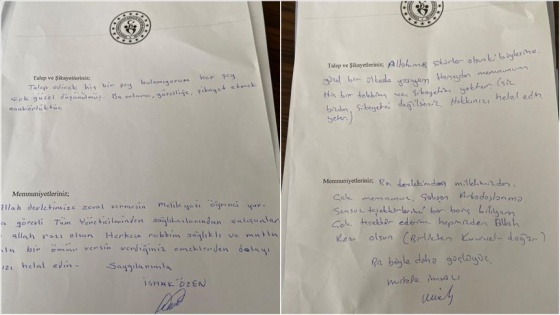 Talep ve Şikayetleriniz;
Talep edicek hiç bir şey bulamıyorum Her şey
çok güzel düşünülmüş. Bu ortamı, güzelliği, şikayet etmek
nankörlüktür
Memnuniyetleriniz;
Allah devletimize zeval vermesin Malıköy öğrenci yur-
görevli Tüm Yöneticilerinden sağlıkçılarından çalışanlar
allah razı olsun Herkese rabbim sağlıklı ve mutlu
bir ömür versin verdiğiniz emeklerden dolayı
helal edin. Saygılarımla
İSMAK ÖZEN
Talep ve Şikayetleriniz; Allahıma şükürler olsunki böylesine
güzel bir ülkede yaşıyom Herşeyden memnunum
Hiç bir talebim ve şikayetim yoktur (Siz
bizden şikayetçi değilseniz Hakkınızı helal edin
yeter)
Memnuniyetleriniz; Ben devletimden milletimizden
Çok memnunum Sağlıkçı Arkadaşlarıma
Sonsuz teşekkürlerimi bir borç biliyorum
Çok teşekkür ederim hepinizden Allah
Razı olsun (Birlikten Kuvvet doğar)
Biz böyle daha güçlüyüz
mustafa